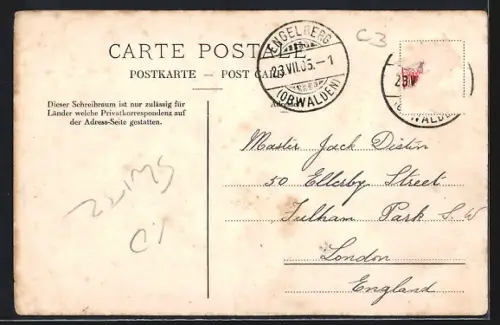 C3
CARTE POSTALE
POSTKARTE – POST CARD
ENGELBERG
23.VII.05.–1
(OBWALDEN)
Dieser Schreibraum ist nur zulässig für
Länder welche Privatkorrespondenz auf
der Adress-Seite gestatten.
Master Jack Distin
50 Ellerby Street
Fulham Park S.W
London
England